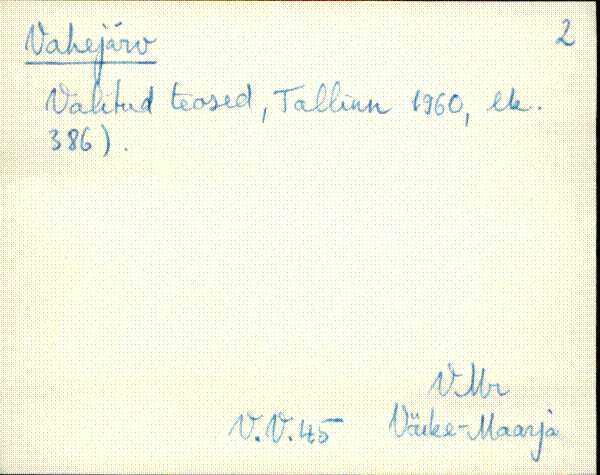 Vahejärv 2
Valitud teosed, Tallinn 1960, lk.
386).
VMr
V.V.45 Väike-Maarja